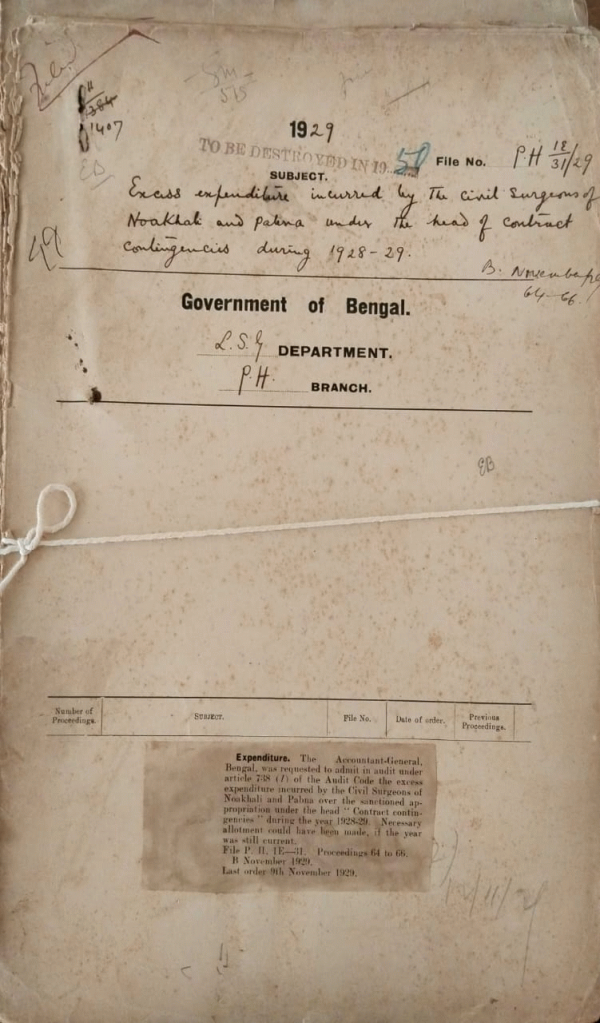 1407
1929
TO BE DESTROYED IN 19 50 File No. PH 1E/31/29
SUBJECT.
Excess expenditure incurred by the civil Surgeons of
Noakhali and Pabna under the head of contract
contingencies during 1928-29.
B. November/
64-66.
49
Government of Bengal.
L.S.G DEPARTMENT.
P.H. BRANCH.
EB
Number of Proceedings. SUBJECT. File No. Date of order. Previous Proceedings.
Expenditure. The Accountant-General,
Bengal, was requested to admit in audit under
article 738 (1) of the Audit Code the excess
expenditure incurred by the Civil Surgeons of
Noakhali and Pabna over the sanctioned ap-
propriation under the head "Contract contin-
gencies" during the year 1928-29. Necessary
allotment could have been made, if the year
was still current.
File P. H. 1E—31. Proceedings 64 to 66.
B November 1929.
Last order 9th November 1929.